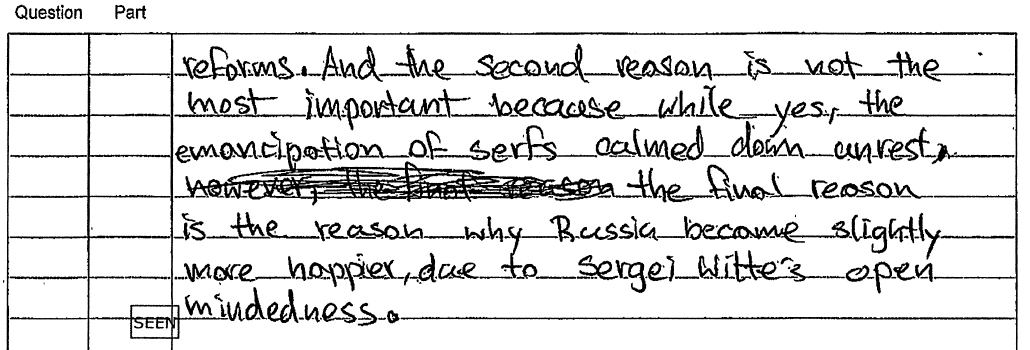 Question Part
reforms. And the second reason is not the
most important because while yes, the
emancipation of serfs calmed down unrest,
however, the final reason the final reason
is the reason why Russia became slightly
more happier, due to Sergei Witte's open
mindedness.
SEEN